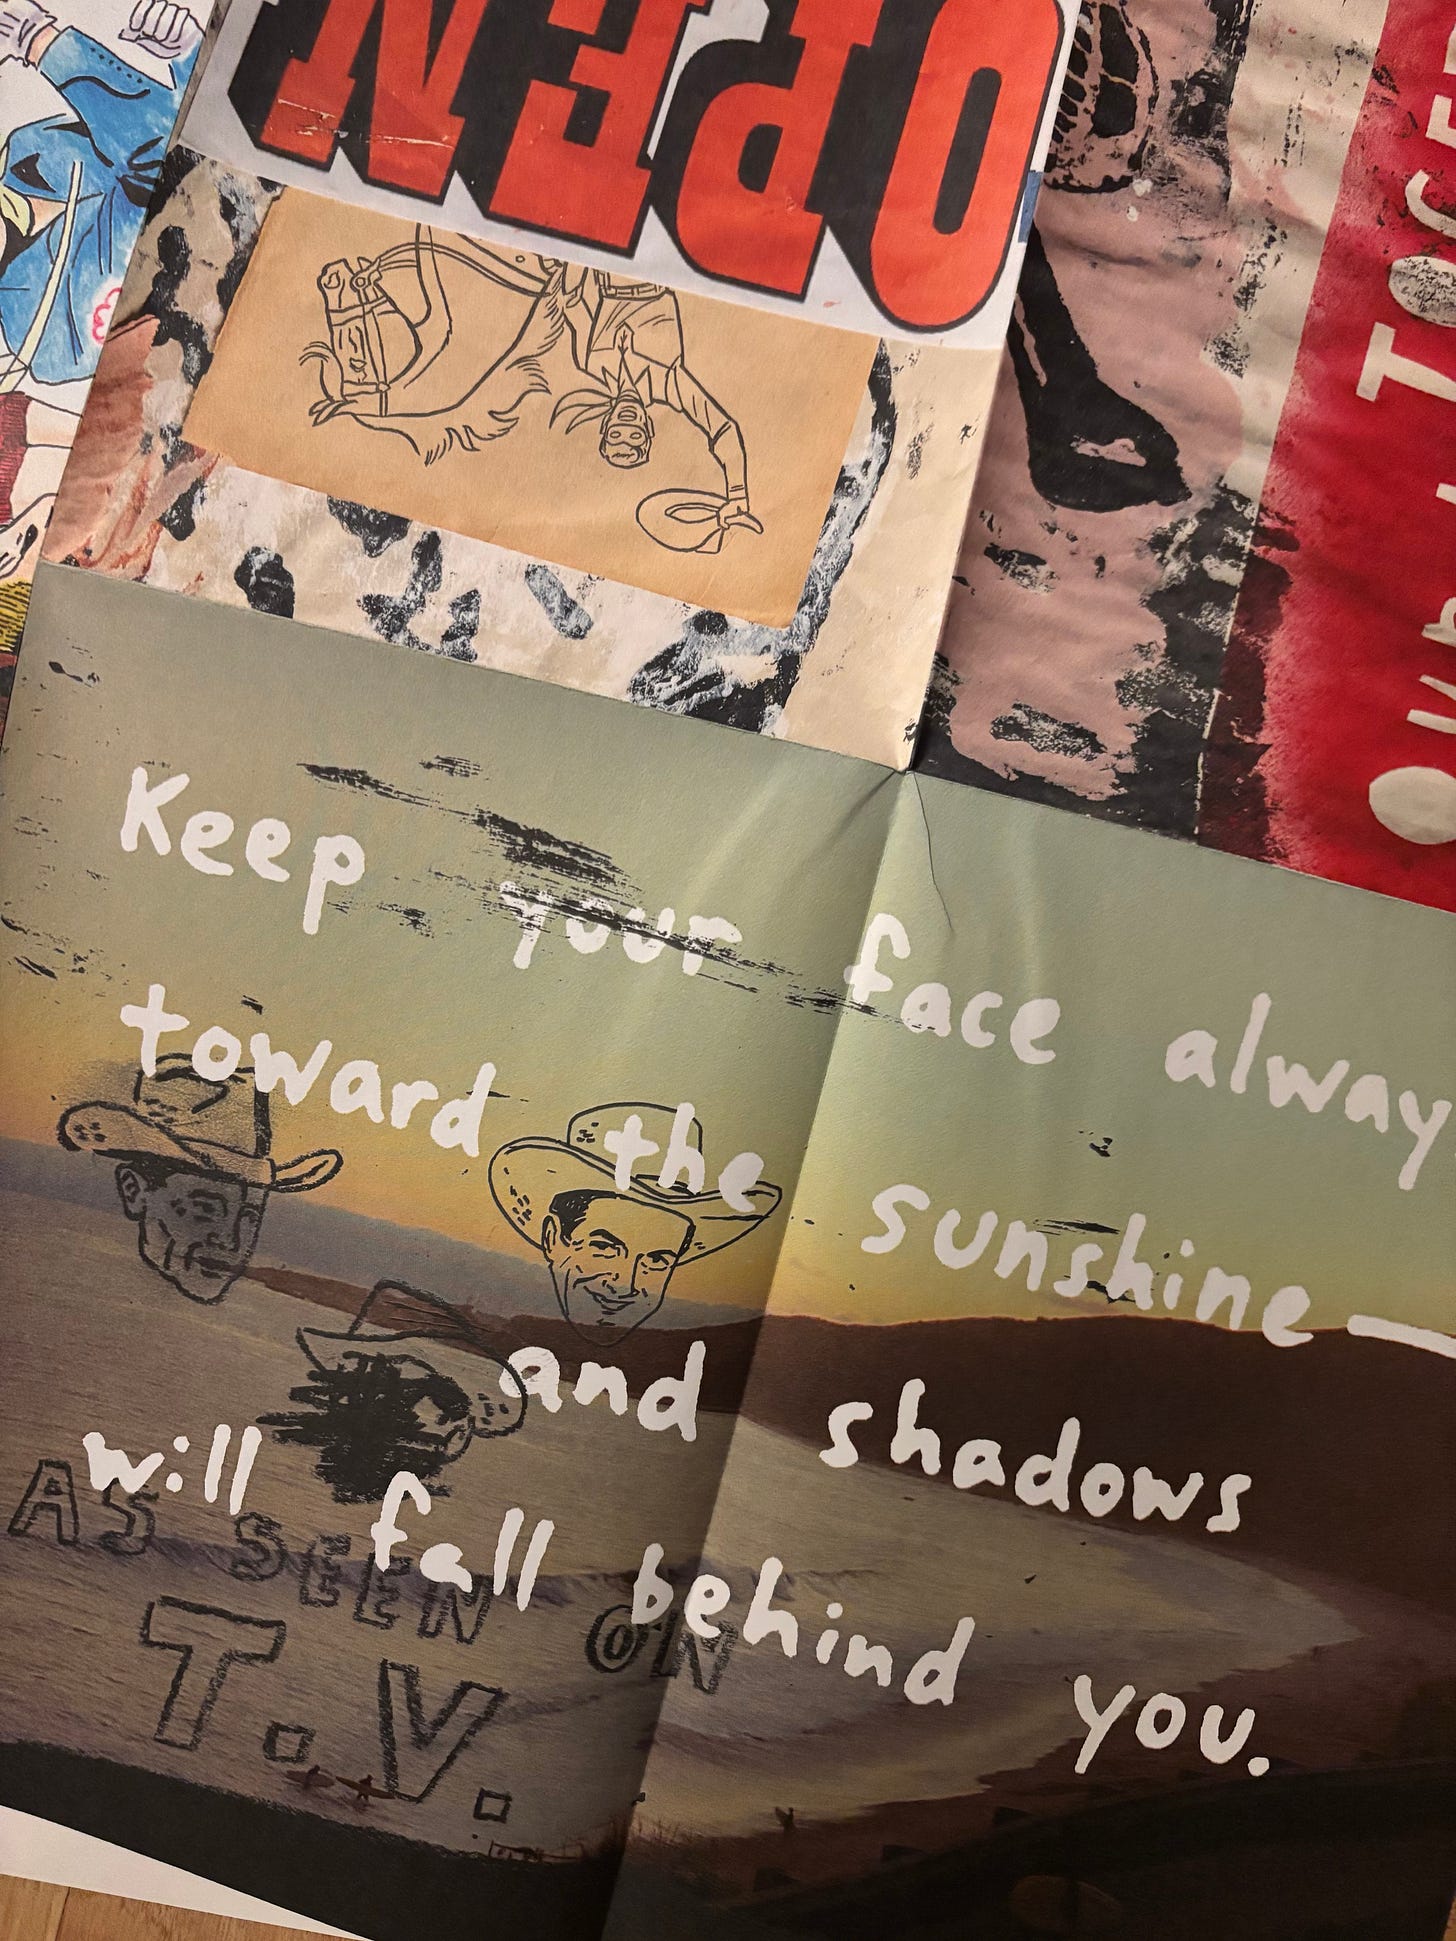 OPEN
Keep your face alway
toward the sunshine—
and shadows
will fall behind you.
AS SEEN ON
T.V.